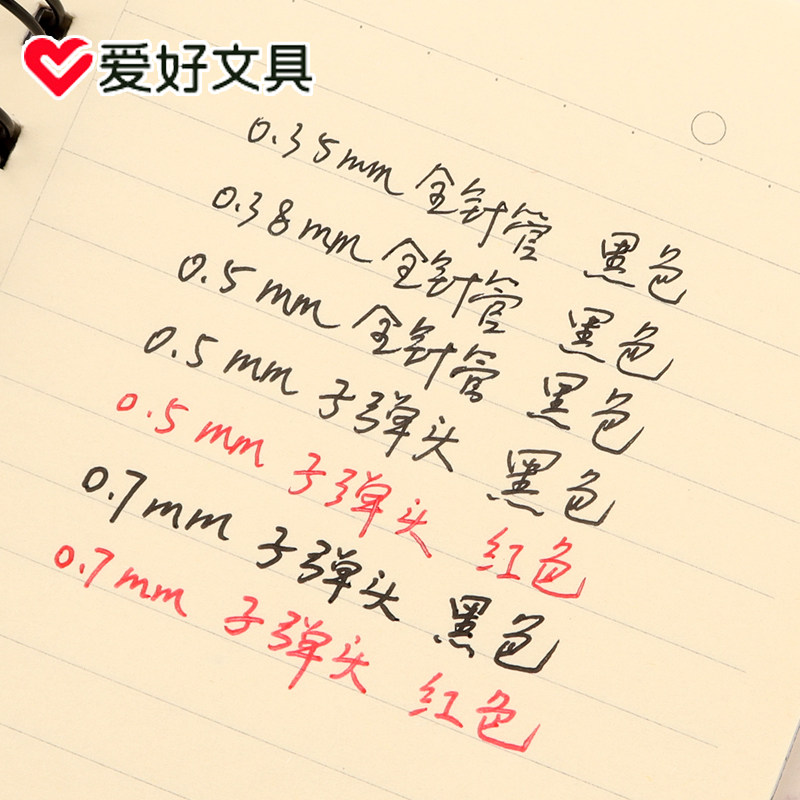 爱好文具
0.35mm 全针管 黑色
0.38mm 全针管 黑色
0.5mm 全针管 黑色
0.5mm 子弹头 黑色
0.5mm 子弹头 红色
0.7mm 子弹头 黑色
0.7mm 子弹头 红色